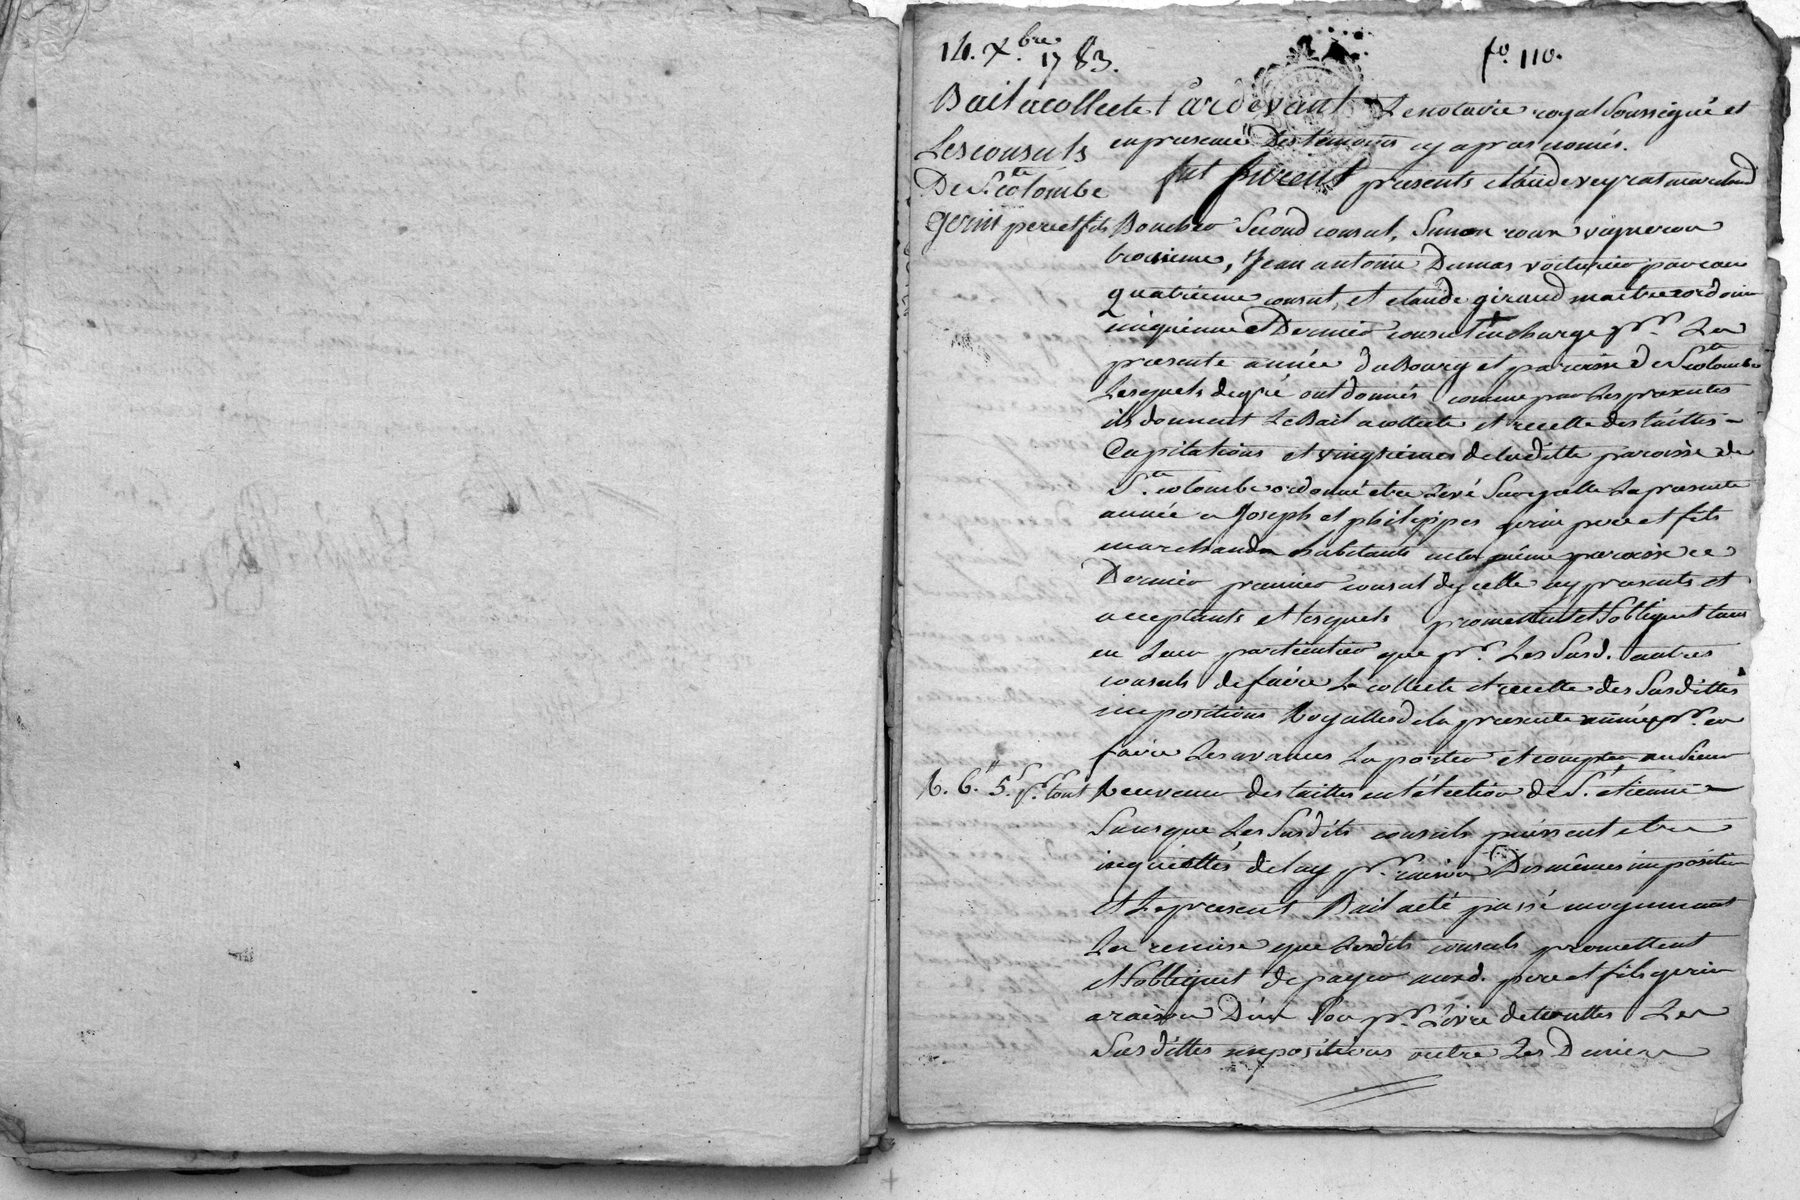 14. Xbre. 1783.
fo. 110.
Bail a collecte
Les consuls
De Ste colombe
gerin pere et fils
Pardevant Le notaire royal soussigné et
en presence Des temoins cy apres només.
fut furent presents claude veyrat marchand
Boucher second consul, Simon roux vigneron
troisieme, Jean antoine Dumas voiturier par eau
quatrieme consul, et claude giraud maitre cordonier
cinquieme et Dernier consul en charge pr. La
presente année du Bourg et paroisse de Ste colombe
Lesquels de gré ont donnés comme par Les presentes
ils donnent Le Bail a collecte et recette des tailles
Capitations et vingtiemes de laditte paroisse de
Ste colombe ordonné etre Levé sur ycelle La presente
année a Joseph et philippes gerin pere et fils
marchands habitants en la même paroisse ce
Dernier premier consul d'ycelle cy presents et
acceptants et lesquels promettent et s'obligent tant
en Leur particulier que pr. Les susd. autres
consuls de faire La collecte et recette des susdittes
impositions Royalles de la presente année pr. en
faire Les avances La porter et compter au sieur
R. 6.# 5.s pr. tout
Receveur des tailles en l'élection de St. étienne
sans que Les susdits consuls puissent etre
inquiettés de luy pr. raison Des mêmes imposition
et Le present Bail a eté passé moyennant
La remise que Lesdits consuls promettent
et s'obligent de payer auxd. pere et fils gerin
a raison D'un sou pr. Livre de touttes Les
susdittes impositions outre Les Deniers